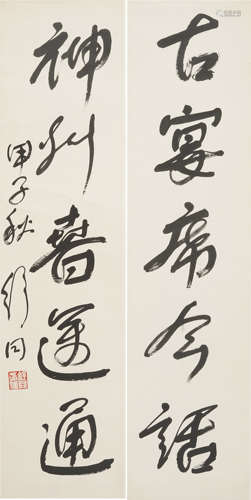 古宴席今話
神州春運通
甲子秋 舒同